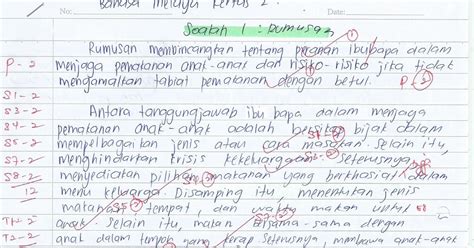 Bahasa Melayu Kertas 2
No: Date:
Soalan 1 : Rumusan
Rumusan membincangkan tentang peranan ibubapa dalam
P-2 menjaga pemakanan anak-anak dan risiko-risiko jika tidak
mengamalkan tabiat pemakanan dengan betul. P-2
S1-2
S3-2 Antara tanggungjawab ibu bapa dalam menjaga
S4-2 pemakanan anak-anak adalah bersikap bijak dalam
S5-2 mempelbagaikan jenis atau cara masakan. Selain itu,
S7-2 menghindarkan krisis kekeluargaan. Seterusnya,
S8-2 menyediakan pilihan makanan yang berkhasiat dalam
12 menu keluarga. Disamping itu, menentukan jenis
makanan, tempat, dan waktu makan untuk
T1-2 anak. Selain itu, makan bersama-sama dengan
T2-2 anak dalam yang kerap. Seterusnya, membawa anak-anak